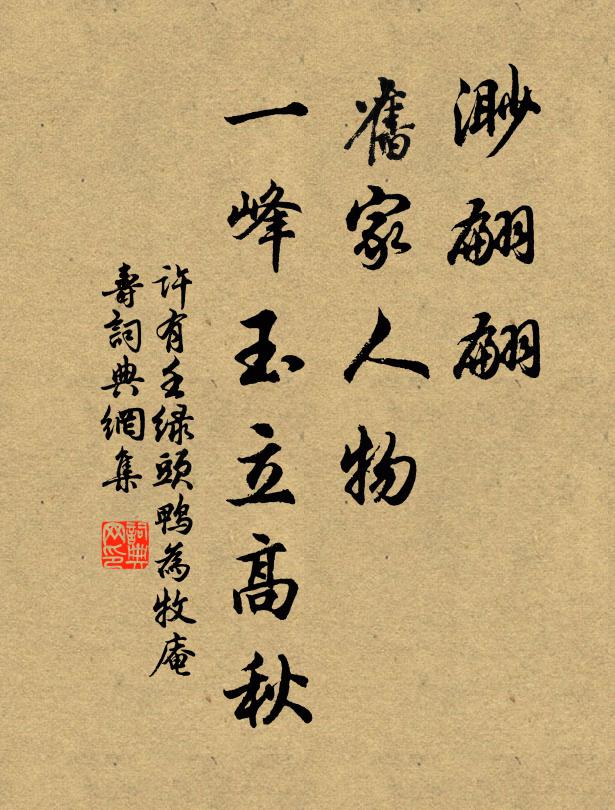 渺翩翩
舊家人物
一峰玉立高秋
許有壬綠頭鴨為牧庵
壽詞典網集
詞典
网印